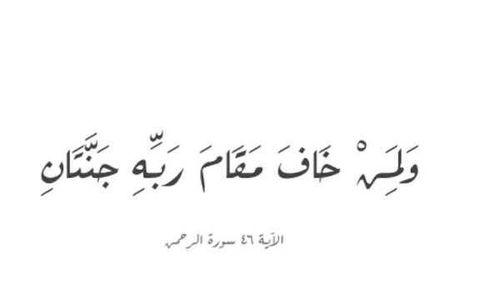 وَلِمَنْ خَافَ مَقَامَ رَبِّهِ جَنَّتَانِ
الآية ٤٦ سورة الرحمن